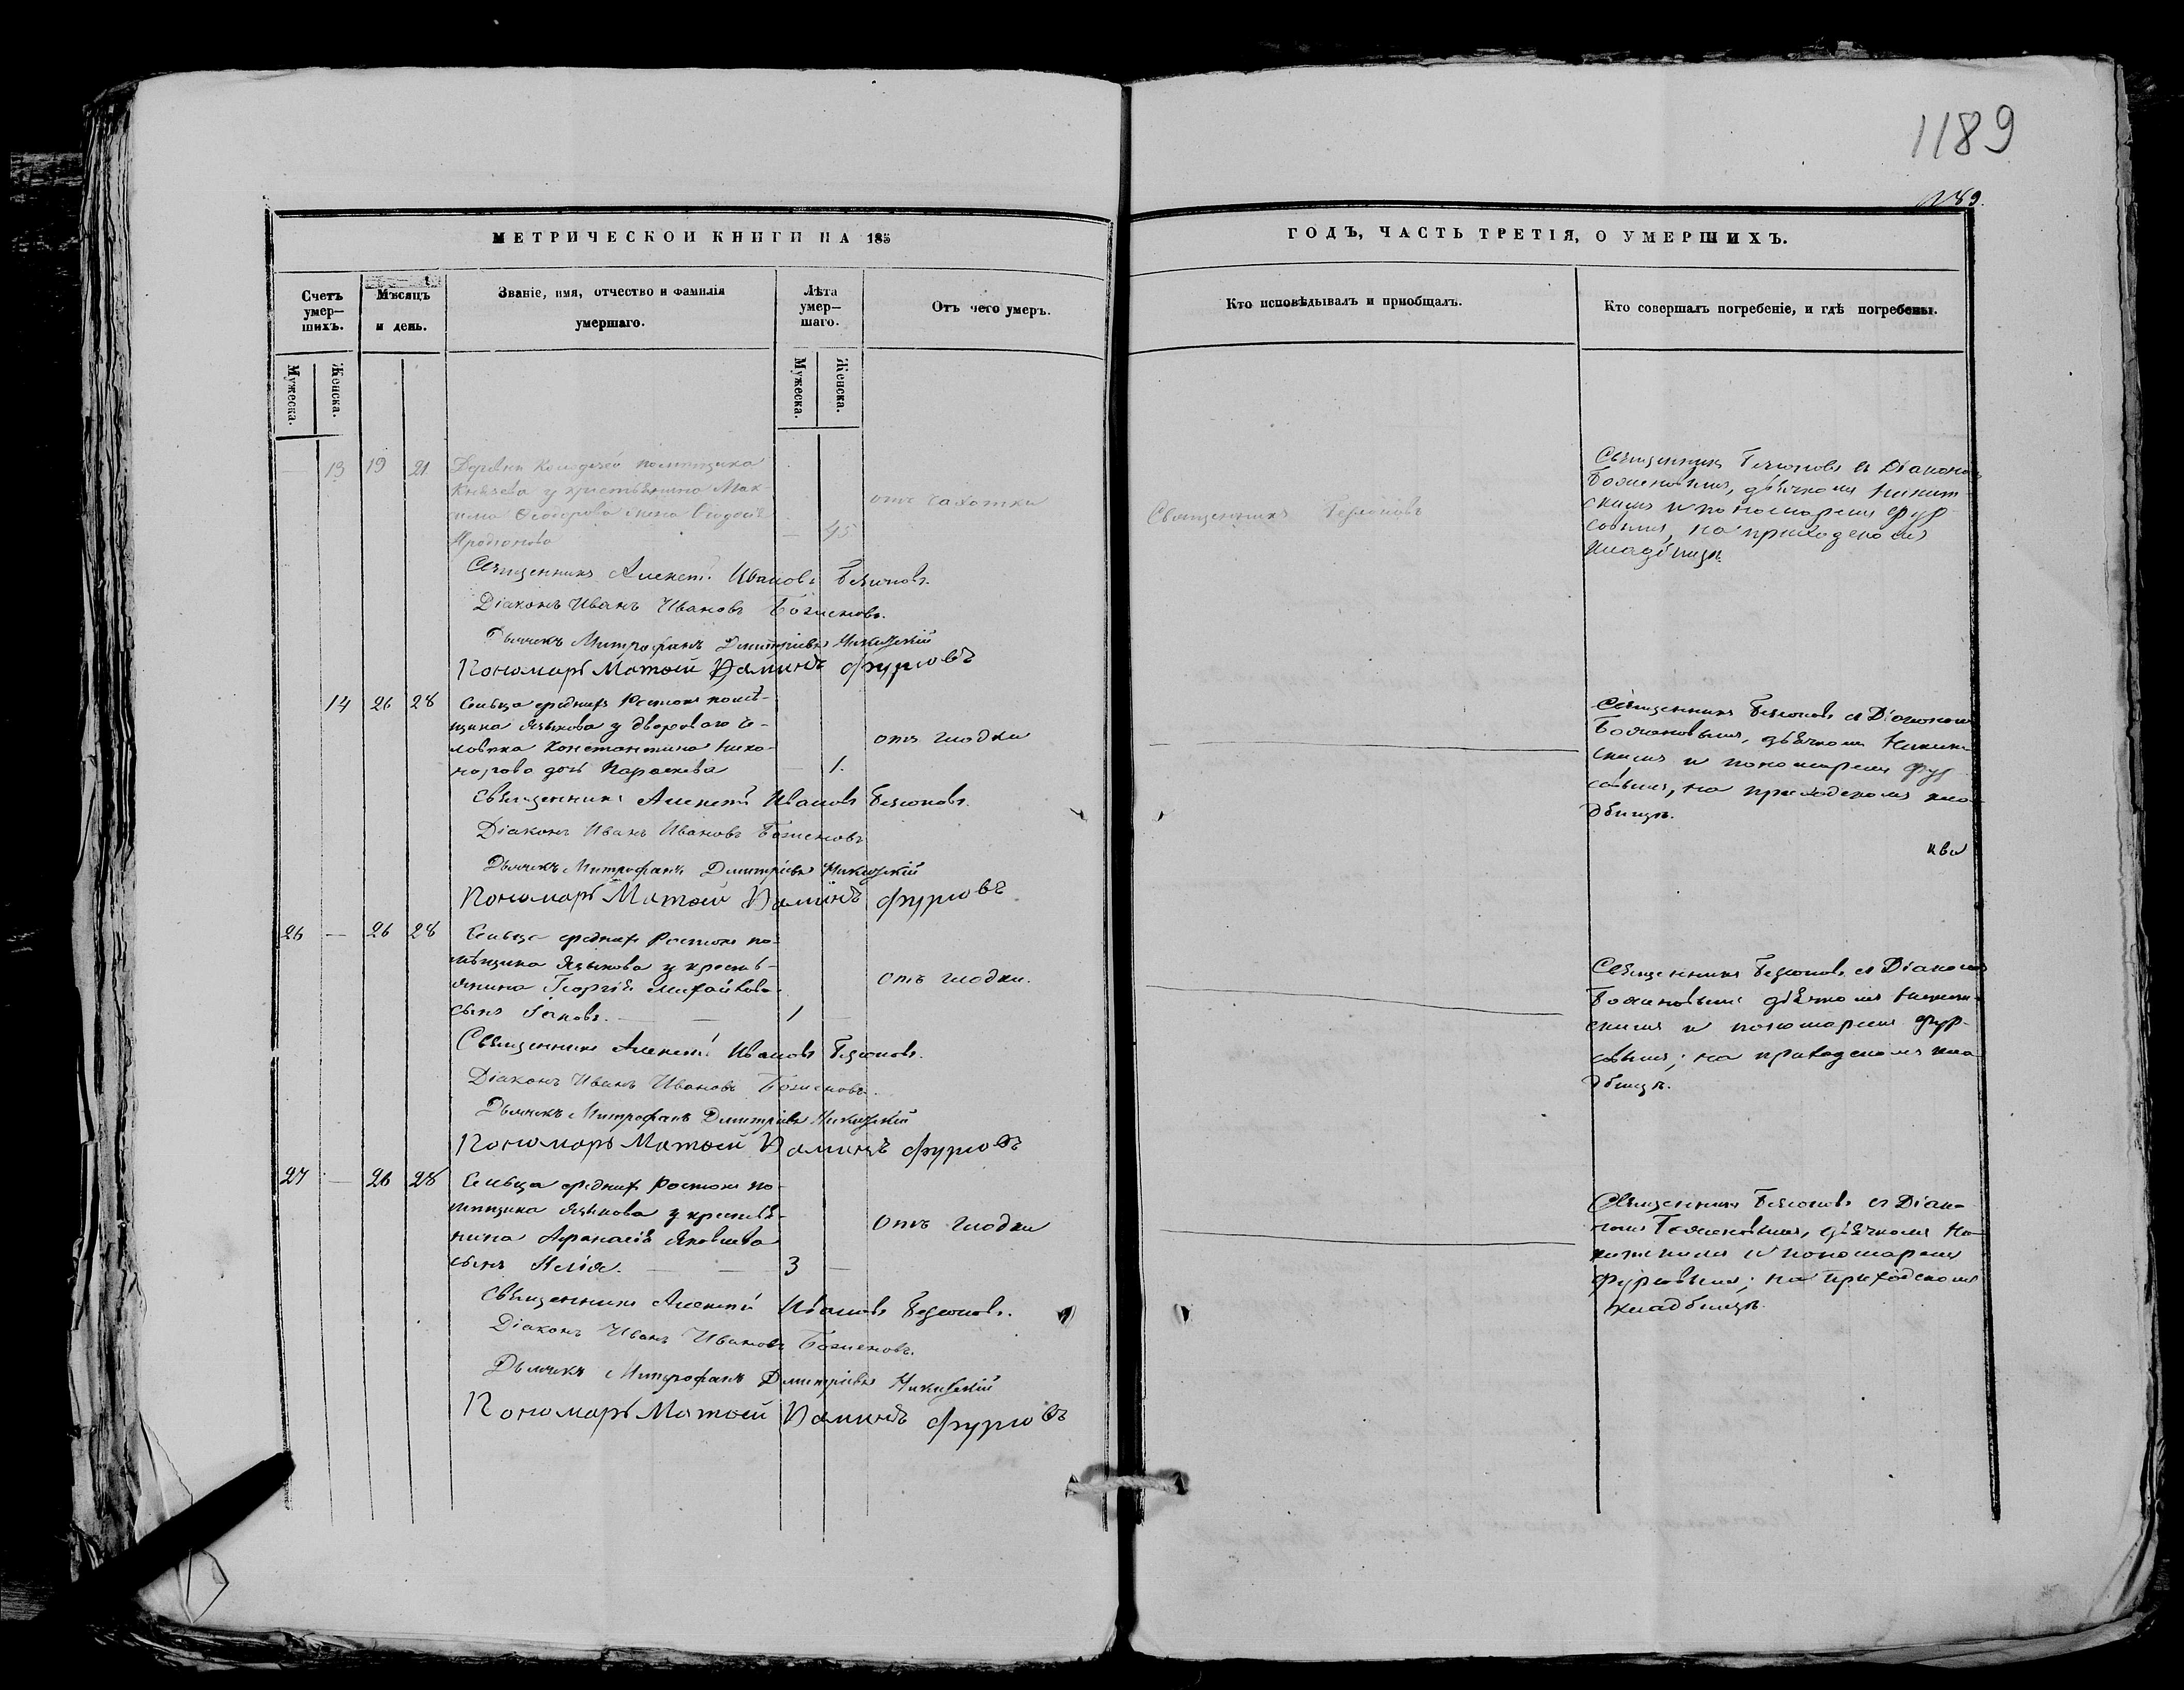 1189
1189.
МЕТРИЧЕСКОЙ КНИГИ НА 185
ГОДЪ, ЧАСТЬ ТРЕТІЯ, О УМЕРШИХЪ.
Счетъ умер—шихъ.
Мѣсяцъ и день.
Званіе, имя, отчество и фамилія умершаго.
Лѣта умер—шаго.
Отъ чего умеръ.
Кто исповѣдывалъ и пріобщалъ.
Кто совершалъ погребеніе, и гдѣ погребены.
Мужеска.
Женска.
Мужеска.
Женска.
— 13 19 21
Деревни помѣщика
Князева у крестьянина Мак-
сима Ѳеодорова жена
— 45
отъ чахотки
Священникъ
Священникъ съ Діакономъ
дьячкомъ Никит-
скимъ и пономаремъ Фур-
совымъ, на приходскомъ
кладбищѣ.
Священникъ Алексѣй Ивановъ
Діаконъ Иванъ Ивановъ Боженовъ.
Дьячекъ Митрофанъ Дмитріевъ Никитскій
Пономарь Матвей Фурсовъ
14 26 28
Сельца среднихъ Ростокъ помѣ-
щика Языкова у двороваго че-
ловѣка Константина Ника-
норова дочь Параскева
— 1.
отъ глодки
Священникъ съ Діакономъ
Боженовымъ, дьячкомъ Никит-
скимъ и пономаремъ Фур-
совымъ, на приходскомъ кла-
дбищѣ.
Священникъ Алексѣй Ивановъ
Діаконъ Иванъ Ивановъ Боженовъ
Дьячекъ Митрофанъ Дмитріевъ Никитскій
Пономарь Матвей Фурсовъ
26 — 26 28
Сельца среднихъ Ростокъ по-
мѣщика Языкова у кресть-
янина Георгія Михайлова
сынъ Іаковъ. —
1 —
отъ глодки.
Священникъ съ Діакономъ
Боженовымъ дьячкомъ Никит-
скимъ и пономаремъ Фур-
совымъ; на приходскомъ кла
дбищѣ.
Священникъ Алексѣй Ивановъ
Діаконъ Иванъ Ивановъ Боженовъ.
Дьячекъ Митрофанъ Дмитріевъ Никитскій
Пономарь Матвей Фурсовъ
27 — 26 28
Сельца среднихъ Ростокъ по-
мѣщика Языкова у крестья-
нина Афанасія Яковлева
сынъ Илія. —
3 —
отъ глодки
Священникъ съ Діако-
номъ Боженовымъ, дьячкомъ Ни-
китскимъ и пономаремъ
Фурсовымъ; на приходскомъ
кладбищѣ.
Священникъ Алексѣй Ивановъ
Діаконъ Иванъ Ивановъ Боженовъ.
Дьячекъ Митрофанъ Дмитріевъ Никитскій
Пономарь Матвей Фурсовъ